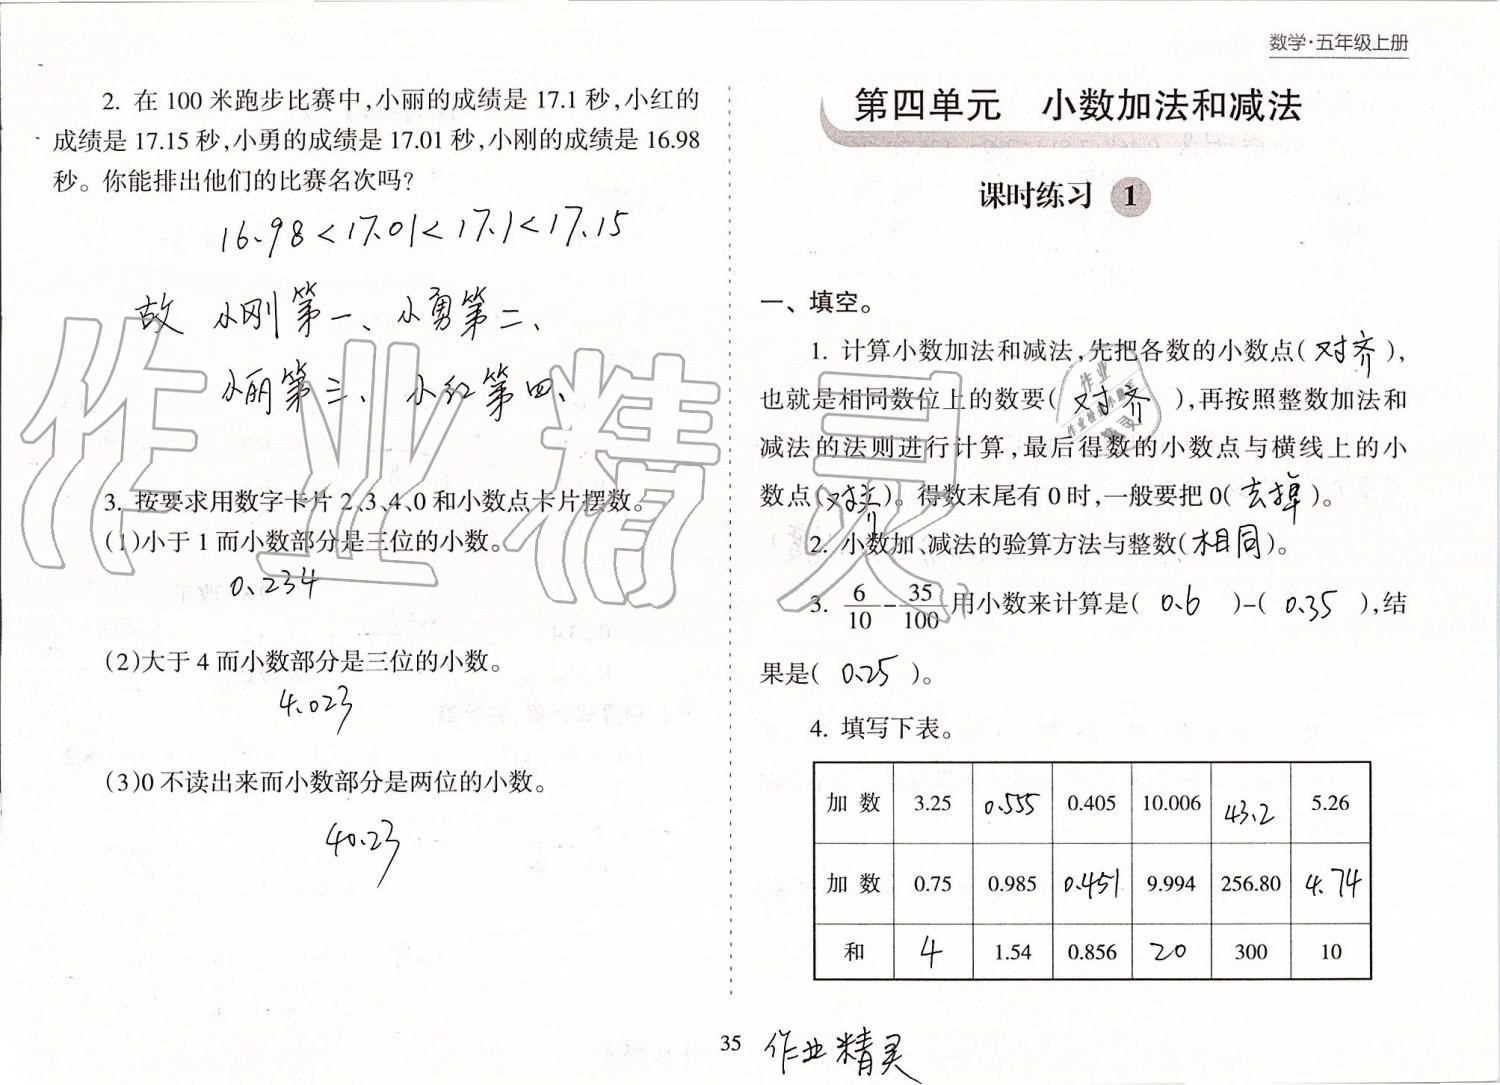 数学·五年级上册
2. 在 100 米跑步比赛中,小丽的成绩是 17.1 秒,小红的
成绩是 17.15 秒,小勇的成绩是 17.01 秒,小刚的成绩是 16.98
秒。你能排出他们的比赛名次吗?
16.98<17.01<17.1<17.15
故 小刚第一、小勇第二、
小丽第三、小红第四、
3. 按要求用数字卡片 2、3、4、0 和小数点卡片摆数。
(1)小于 1 而小数部分是三位的小数。
0.234
(2)大于 4 而小数部分是三位的小数。
4.023
(3)0 不读出来而小数部分是两位的小数。
40.23
第四单元 小数加法和减法
课时练习 1
一、填空。
1. 计算小数加法和减法,先把各数的小数点(对齐),
也就是相同数位上的数要(对齐),再按照整数加法和
减法的法则进行计算,最后得数的小数点与横线上的小
数点(对齐)。得数末尾有 0 时,一般要把 0(去掉)。
2. 小数加、减法的验算方法与整数(相同)。
3. 6/10 - 35/100 用小数来计算是( 0.6 )-( 0.35 ),结
果是( 0.25 )。
4. 填写下表。
加 数 3.25 0.555 0.405 10.006 43.2 5.26
加 数 0.75 0.985 0.451 9.994 256.80 4.74
和 4 1.54 0.856 20 300 10
35
作业精灵
作业精灵